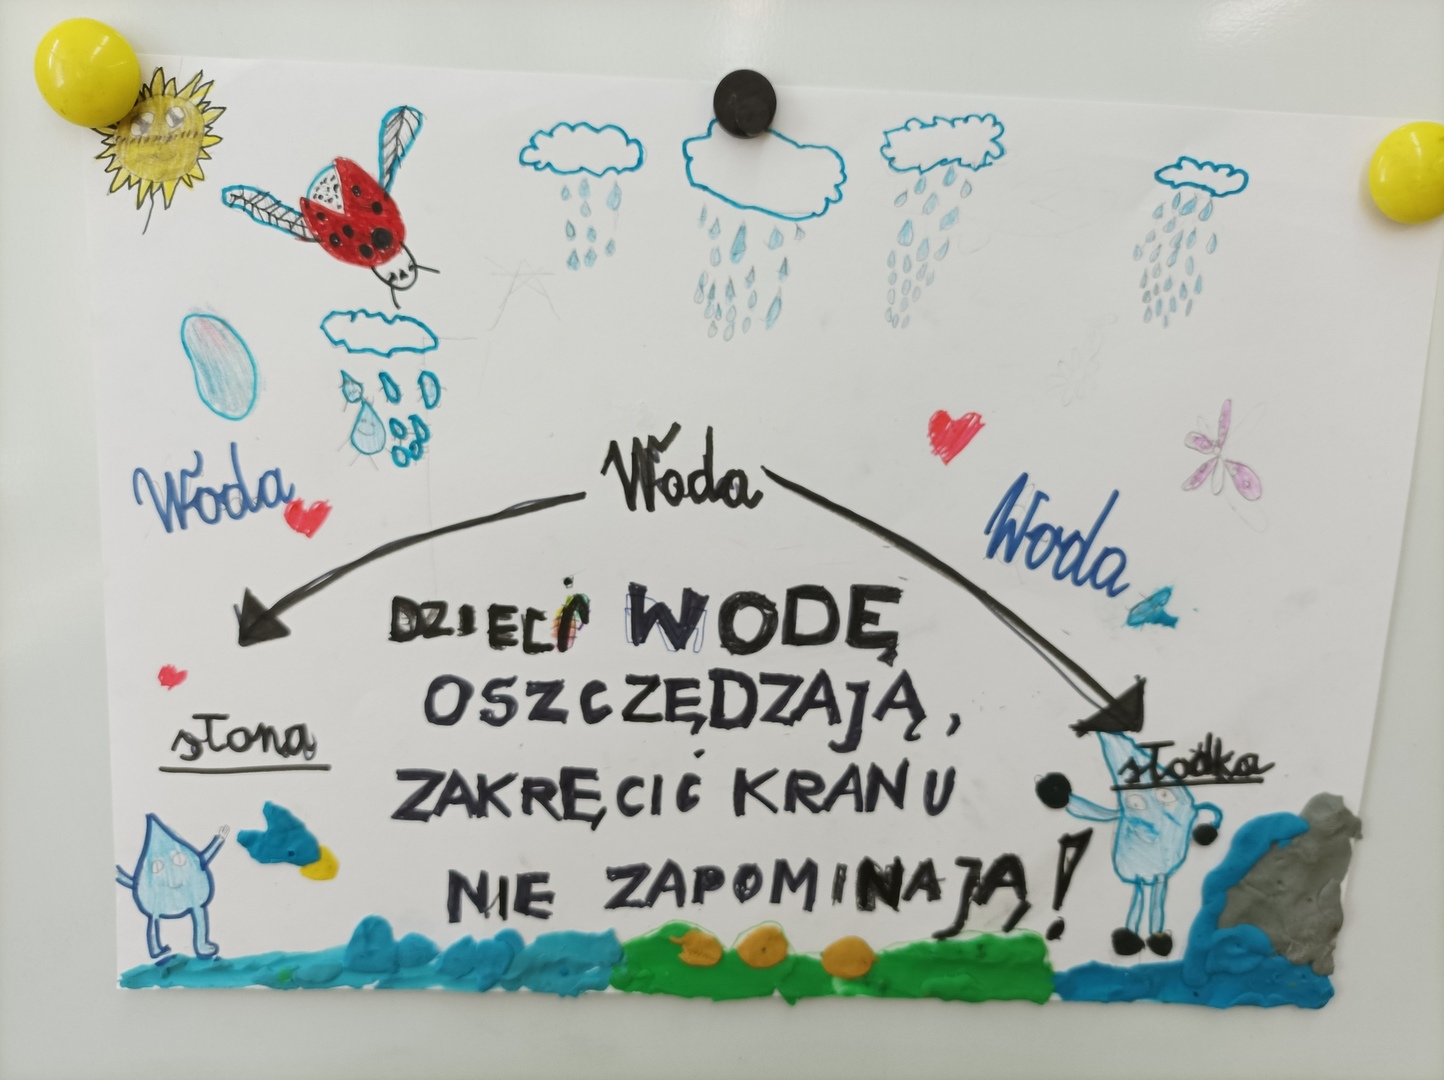 Woda
Woda
Woda
DZIECI WODĘ
OSZCZĘDZAJĄ,
ZAKRĘCIĆ KRANU
NIE ZAPOMINAJĄ!
słona
słodka